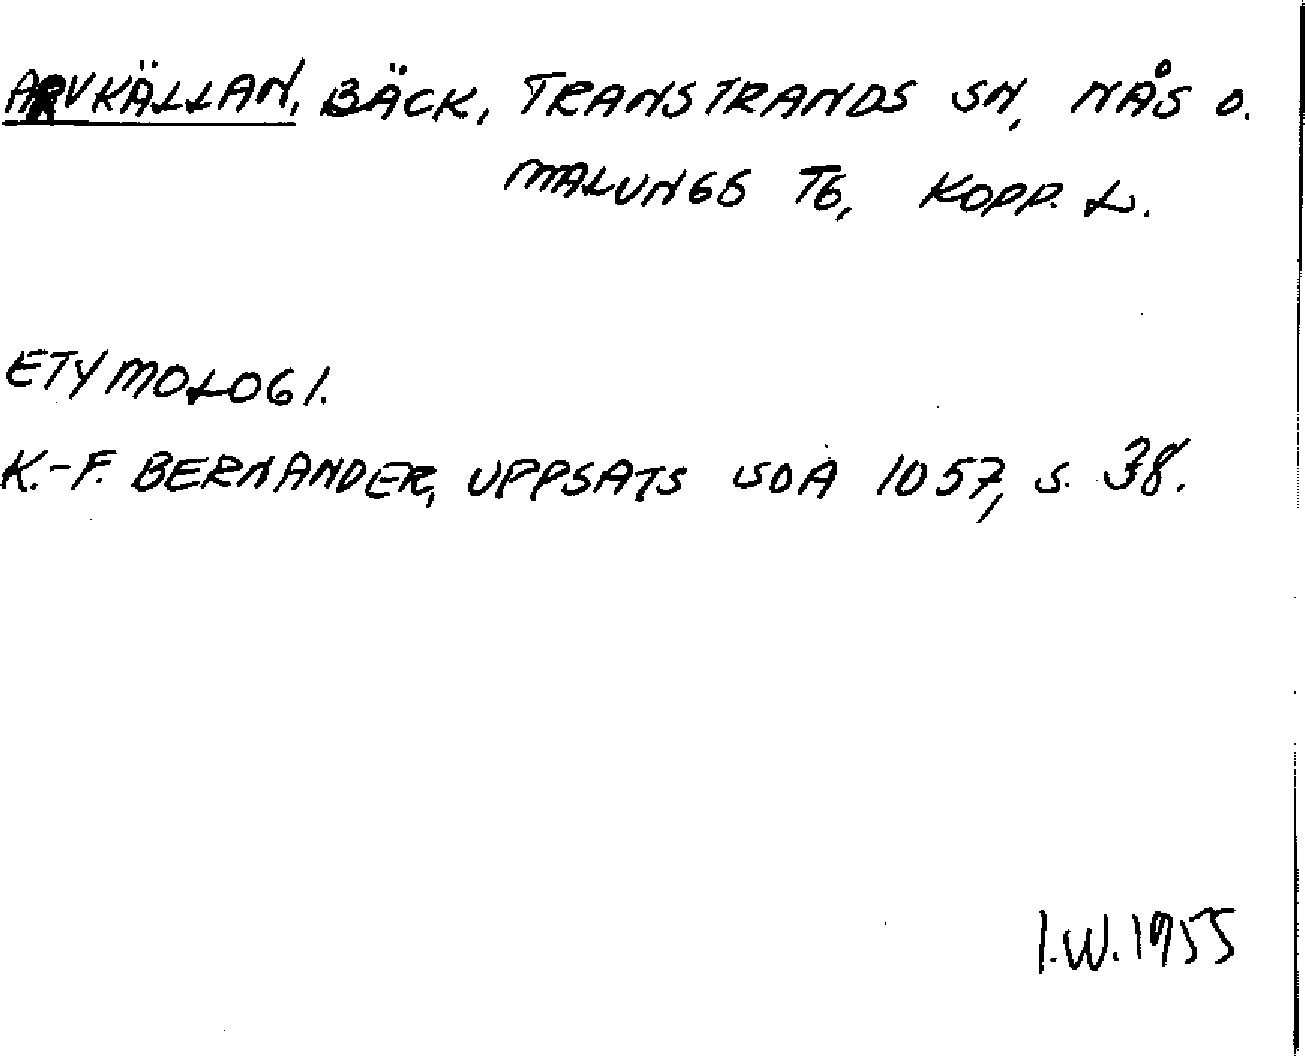 ARVKÄLLAN, BÄCK, TRANSTRANDS SN, NÅS O.
MALUNGS TG, KOPP. L.
ETYMOLOGI.
K.-F. BERNANDER, UPPSATS SOA 1057, S. 38.
I.W. 1955